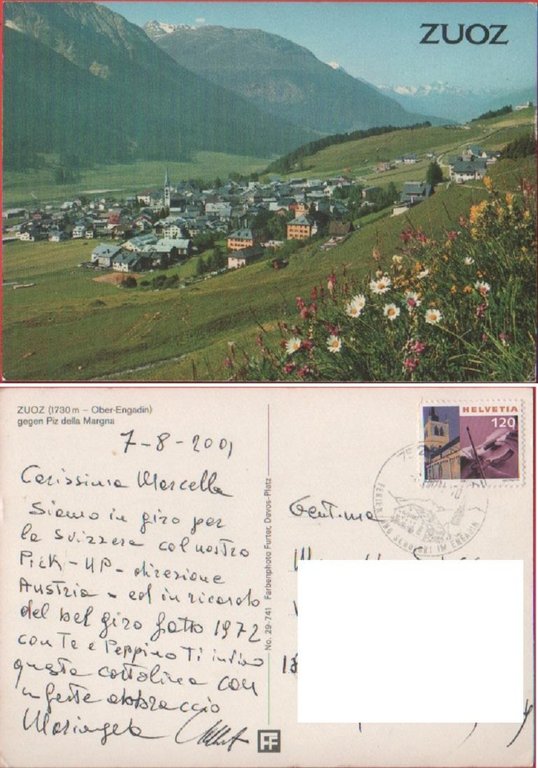 ZUOZ
ZUOZ (1730 m – Ober-Engadin)
gegen Piz della Margna
7-8-2001
Carissima Marcella
Siamo in giro per
la Svizzera col nostro
Pick-UP- direzione
Austria - ed in ricordo
del bel giro fatto 1972
con Te e Peppino Ti invio
questa cartolina con
un forte abbraccio
Mariangela
No. 29-741 Farbenphoto Furter, Davos-Platz
HELVETIA
120
Gent.ma
18